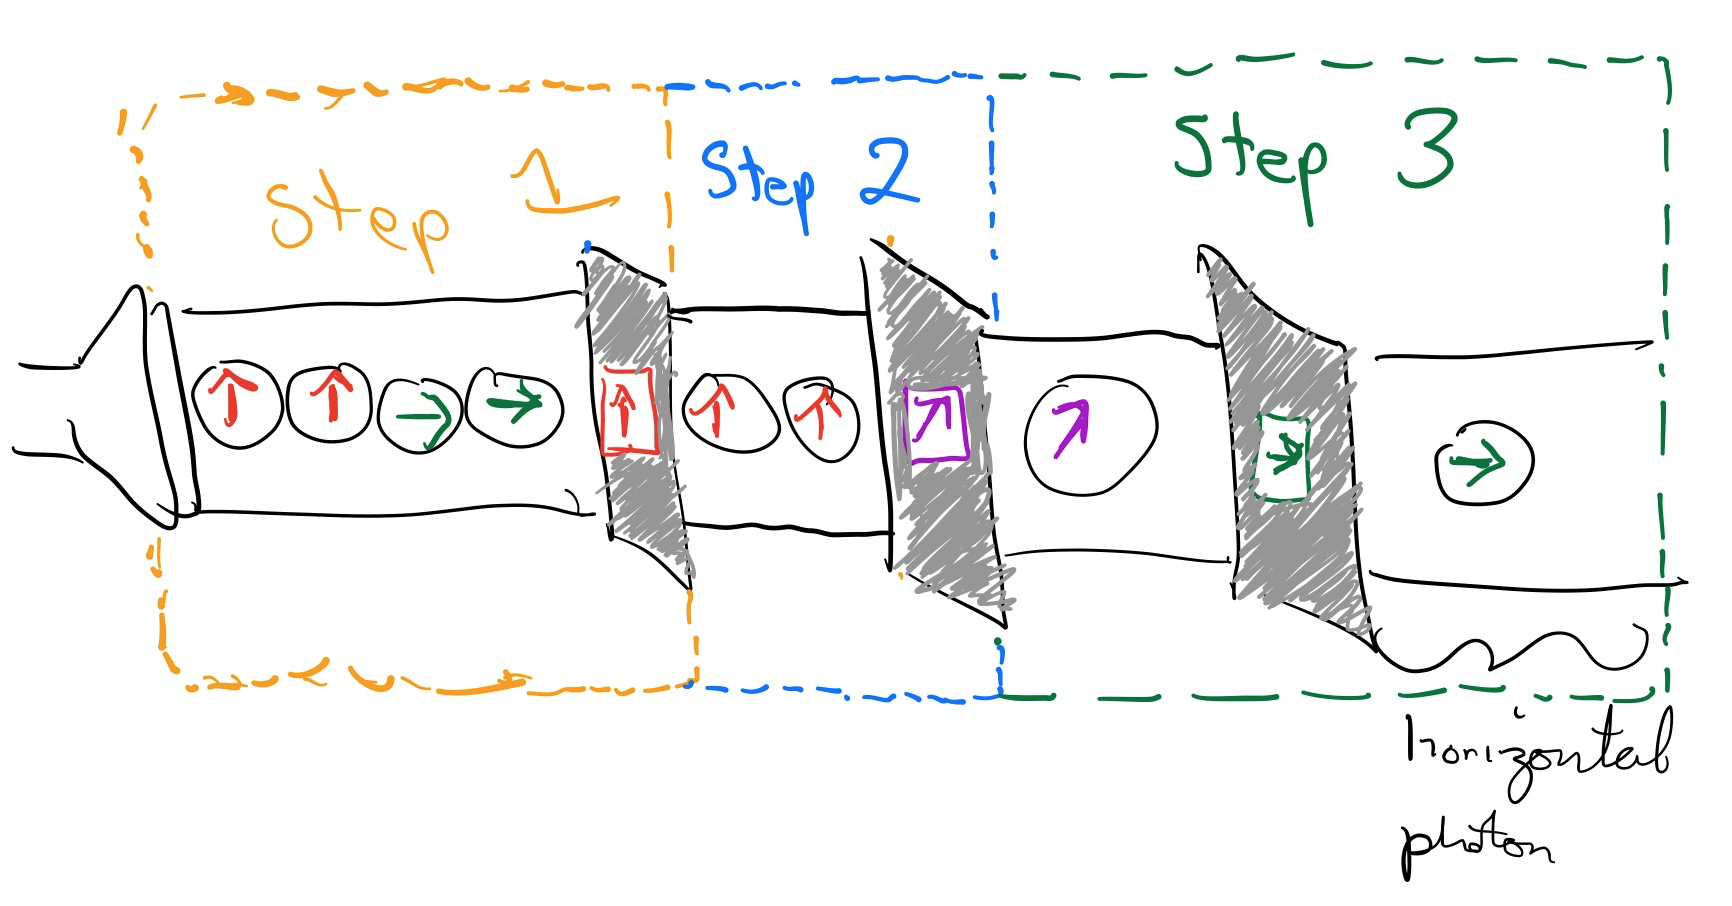 Step 1
Step 2
Step 3
horizontal
photon